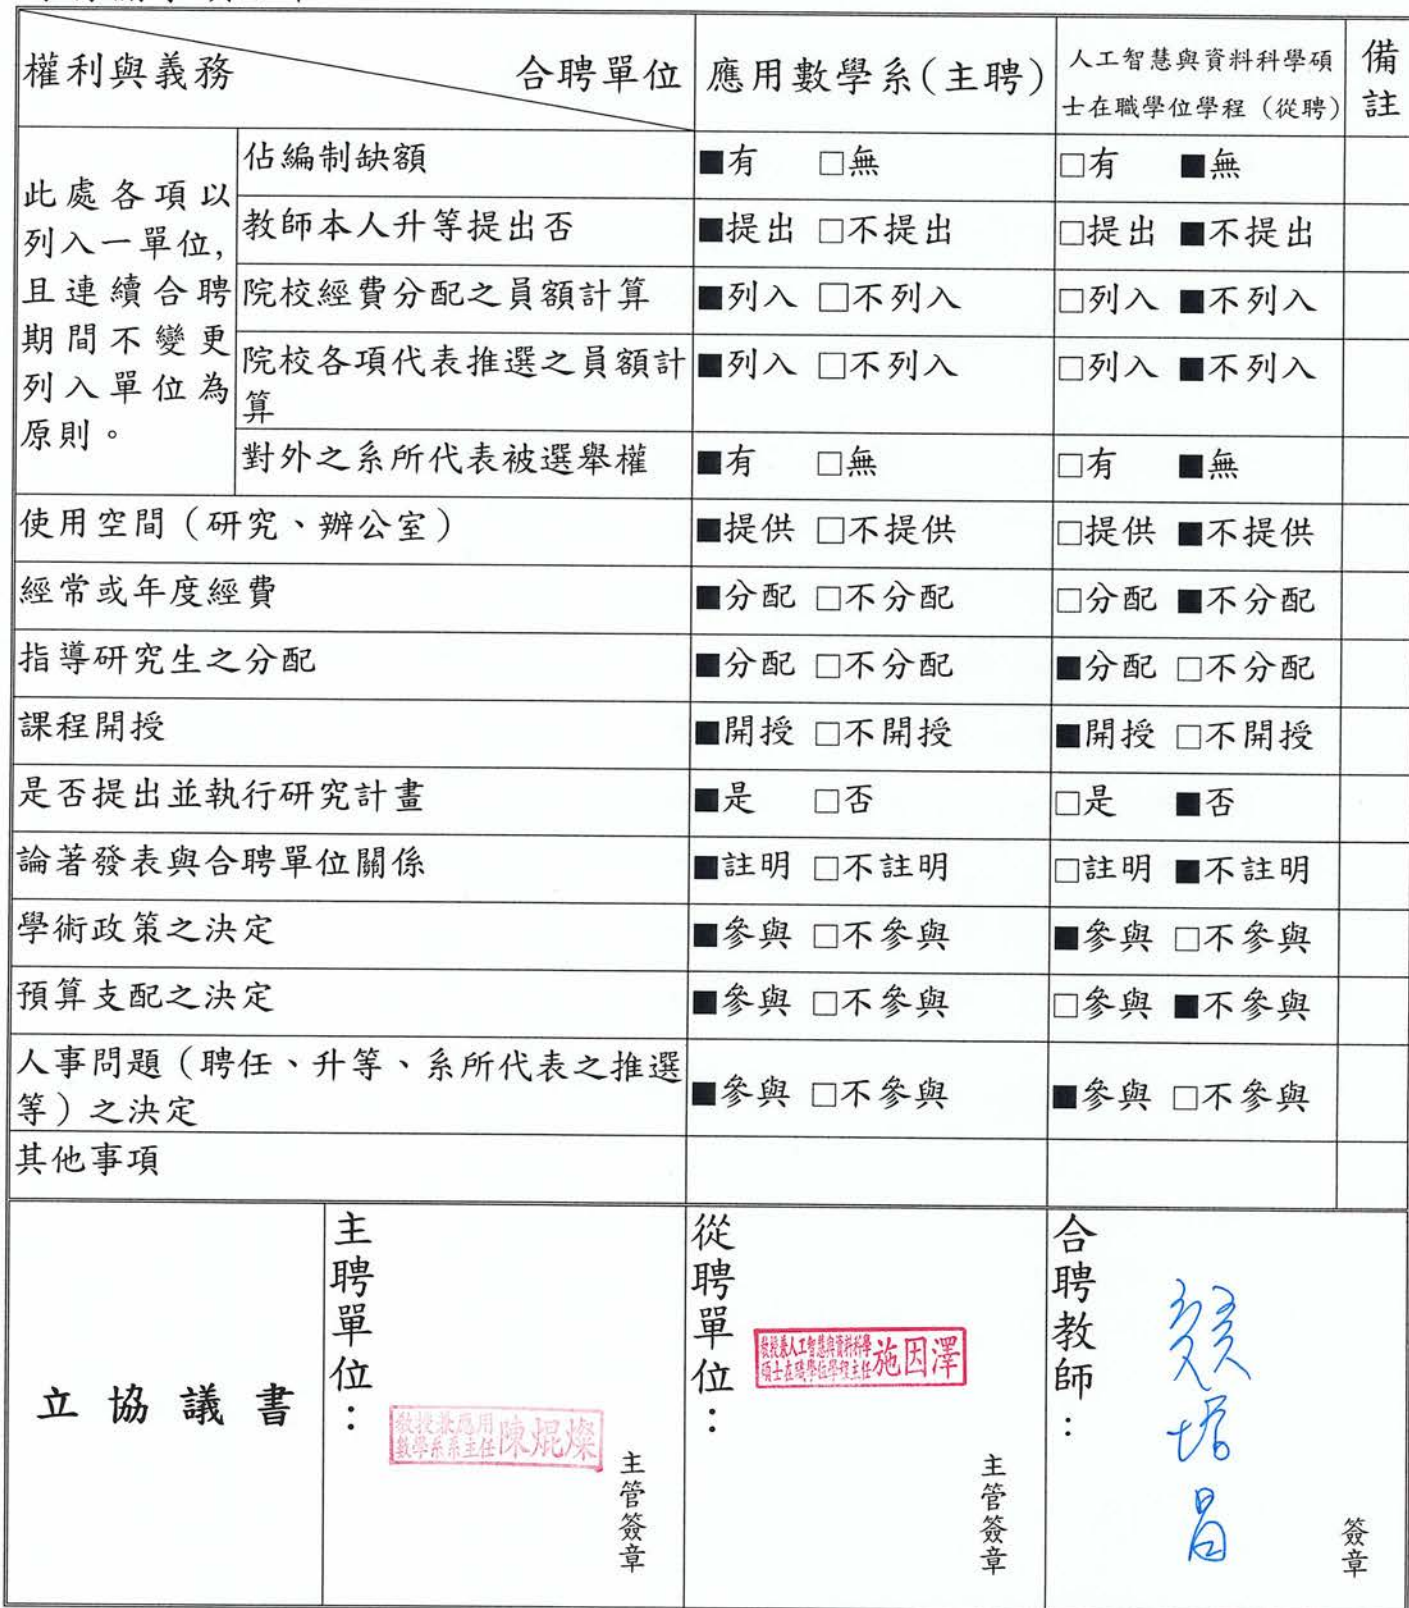 權利與義務 合聘單位 應用數學系(主聘) 人工智慧與資料科學碩 備
士在職學位學程（從聘） 註
此處各項以
列入一單位,
且連續合聘
期間不變更
列入單位為
原則。
佔編制缺額 ■有 □無 □有 ■無
教師本人升等提出否 ■提出 □不提出 □提出 ■不提出
院校經費分配之員額計算 ■列入 □不列入 □列入 ■不列入
院校各項代表推選之員額計 ■列入 □不列入 □列入 ■不列入
算
對外之系所代表被選舉權 ■有 □無 □有 ■無
使用空間（研究、辦公室） ■提供 □不提供 □提供 ■不提供
經常或年度經費 ■分配 □不分配 □分配 ■不分配
指導研究生之分配 ■分配 □不分配 ■分配 □不分配
課程開授 ■開授 □不開授 ■開授 □不開授
是否提出並執行研究計畫 ■是 □否 □是 ■否
論著發表與合聘單位關係 ■註明 □不註明 □註明 ■不註明
學術政策之決定 ■參與 □不參與 ■參與 □不參與
預算支配之決定 ■參與 □不參與 □參與 ■不參與
人事問題（聘任、升等、系所代表之推選
等）之決定 ■參與 □不參與 ■參與 □不參與
其他事項
立協議書
主聘單位：
教授兼應用
數學系系主任 陳焜燦
主管簽章
從聘單位：
教授兼人工智慧與資料科學
碩士在職學位學程主任 施因澤
主管簽章
合聘教師：
簽章